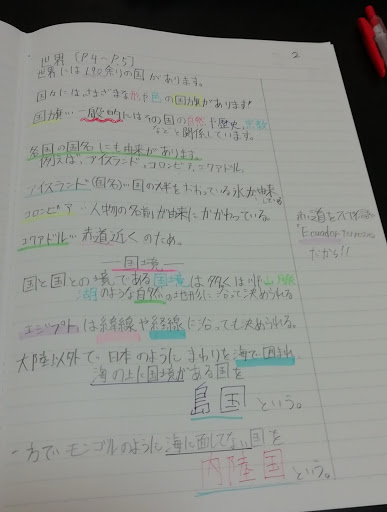 世界 (P4~P.5)
2
世界には190余りの国があります。
国々には、さまざまな形や色の国旗があります。
国旗…一般的にはその国の自然や歴史、宗教
などと関係しています。
各国の国名にも由来があります。
例えば、アイスランド、コロンビア、エクアドル。
アイスランド(国名)…国の大半をおおっている氷が由来
している
コロンビア…人物の名前が由来にかかわっている。
エクアドル…赤道近くのため。
赤道を
"Ecuador
だから!!
国境
国と国との境である国境は多くは川や山脈
湖のような自然の地形に沿って決められる
エジプトは緯線や経線に沿っても決められる。
大陸以外で、日本のようにまわりを海で囲まれ
海の上に国境がある国を
島国という。
一方で、モンゴルのように海に面してない国を
内陸国という。